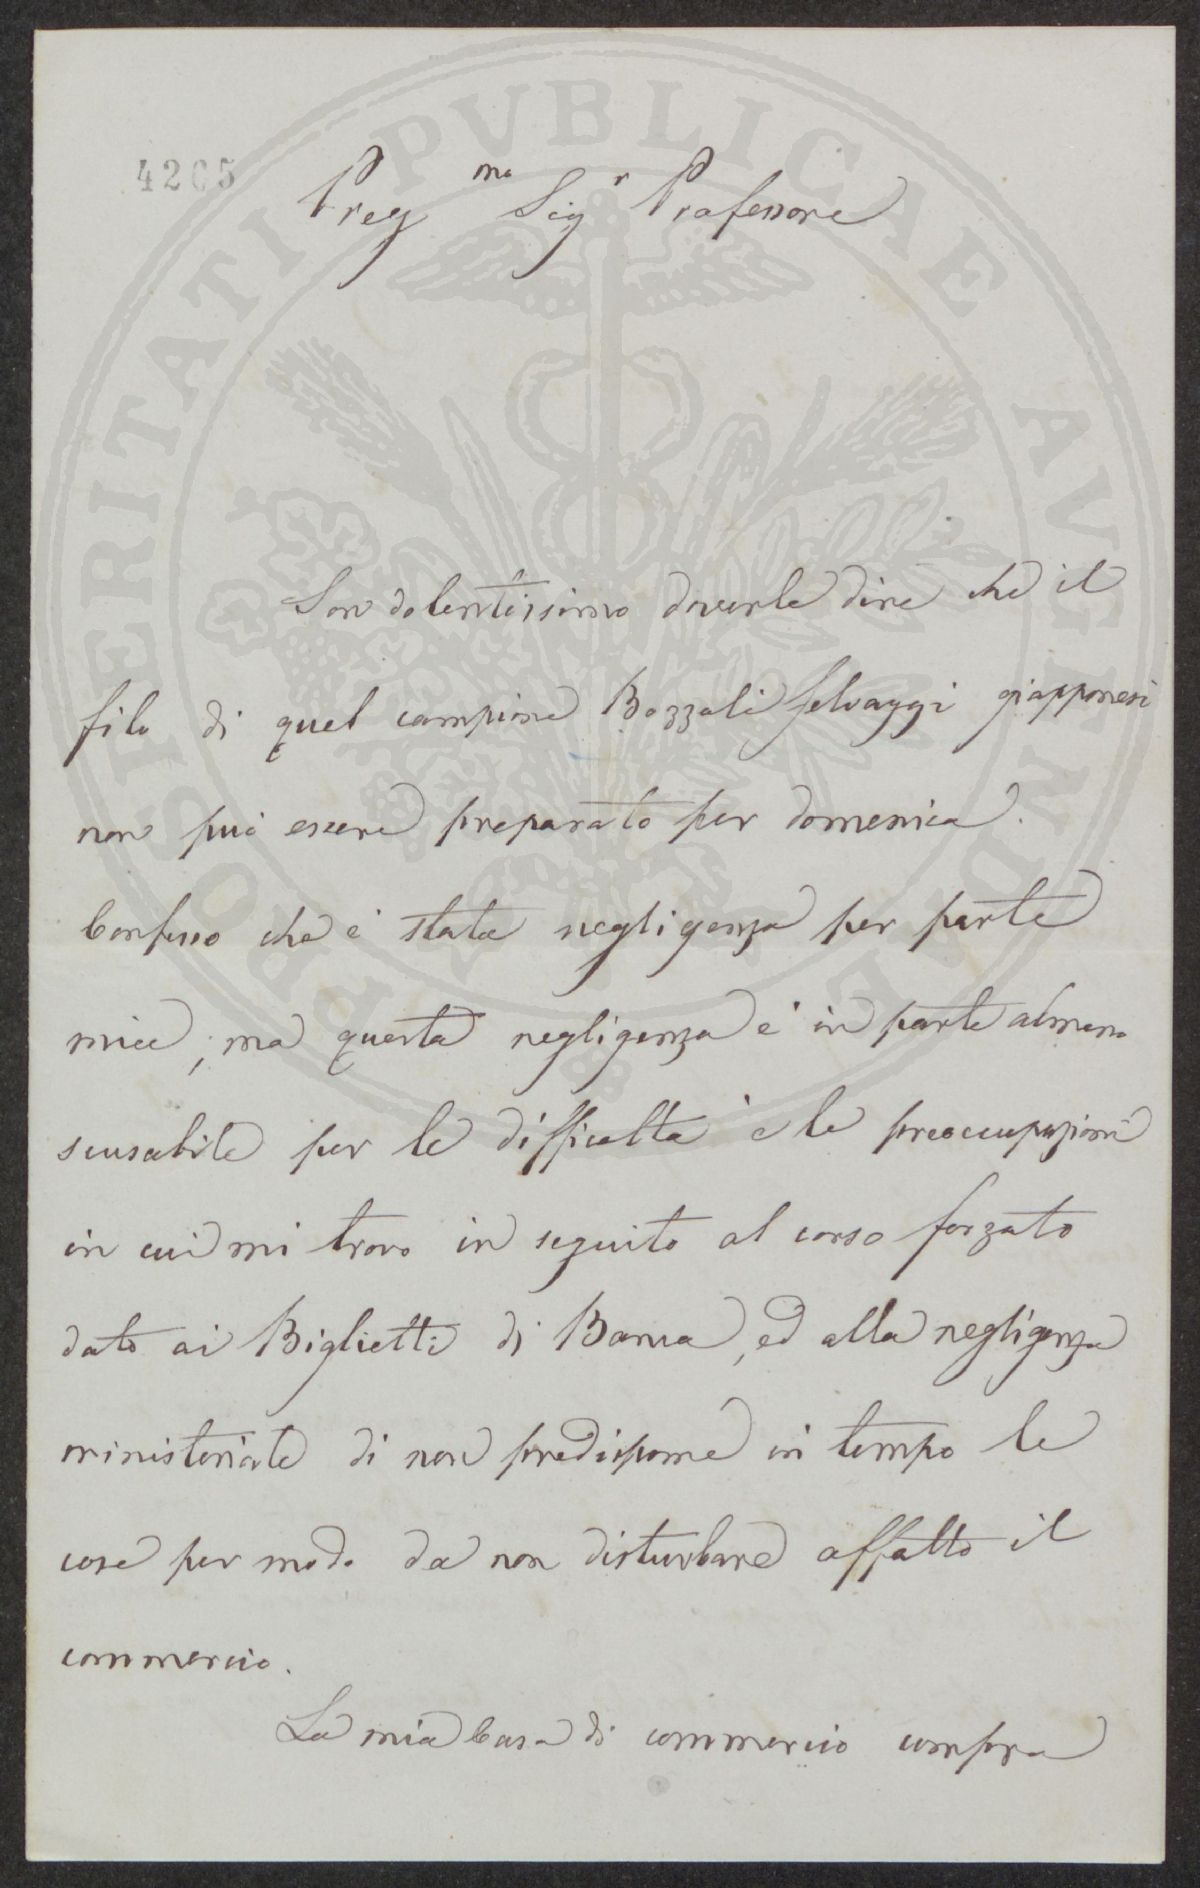 4265
Preg.mo Sigr Professore
Son dolentissimo doverle dire che il
filo di quel campione Bozzoli selvaggi giapponesi
non può essere preparato per domenica.
Confesso che è stata negligenza per parte
mia; ma questa negligenza è in parte almeno
scusabile per le difficoltà e le preoccupazioni
in cui mi trovo in seguito al corso forzato
dato ai Biglietti di Banca, ed alla negligenza
ministeriale di non predisporre in tempo le
cose per modo da non disturbare affatto il
commercio.
La mia Casa di commercio compra
PROSPERITATI PVBLICAE AVGENDAE